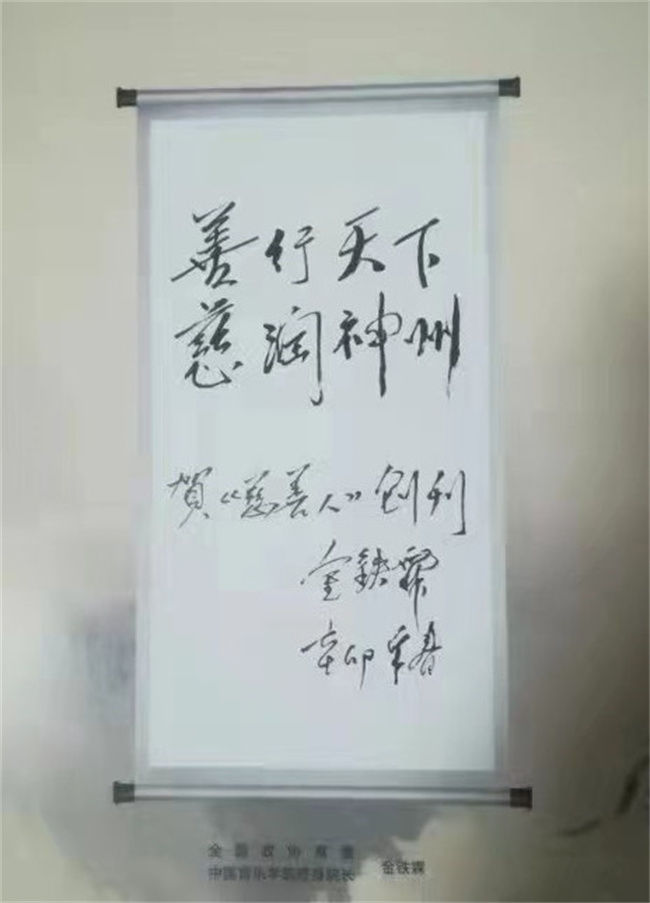 善行天下
慈润神州
賀《慈善人》创刊
金鉄霖
辛卯年春
全国政协常委
中国音乐学院终身院长 金铁霖